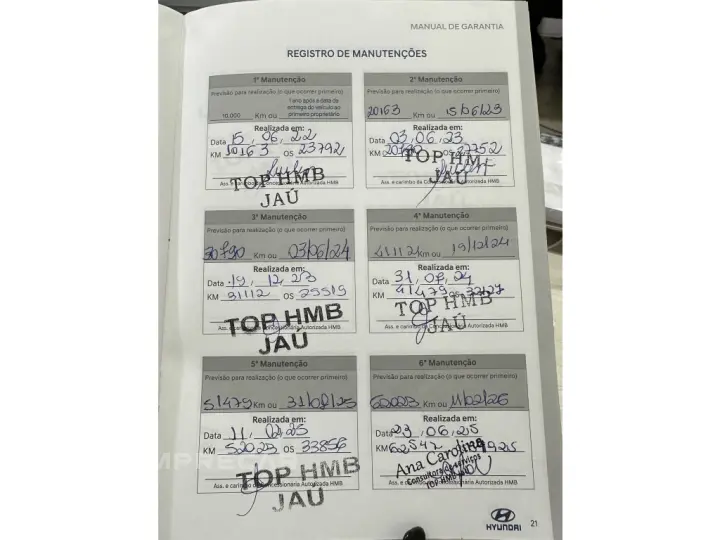 MANUAL DE GARANTIA
REGISTRO DE MANUTENÇÕES
1ª Manutenção
Previsão para realização (o que ocorrer primeiro)
10.000 Km ou 1 ano após a data de entrega do veículo ao primeiro proprietário
Realizada em:
Data 15, 06, 22
KM 10163 OS 23792
TOP HMB
JAÚ
Ass. e carimbo da Concessionária Autorizada HMB
2ª Manutenção
Previsão para realização (o que ocorrer primeiro)
20163 Km ou 15/06/23
Realizada em:
Data 03, 06, 23
KM 20790 OS
TOP HM
JAÚ
Ass. e carimbo da Concessionária Autorizada HMB
3ª Manutenção
Previsão para realização (o que ocorrer primeiro)
30790 Km ou 03/06/24
Realizada em:
Data 19, 12, 23
KM 31112 OS 25519
TOP HMB
JAÚ
Ass. e carimbo da Concessionária Autorizada HMB
4ª Manutenção
Previsão para realização (o que ocorrer primeiro)
41112 Km ou 19/12/24
Realizada em:
Data 31, 07, 24
KM 41479 OS
TOP HMB
JAÚ
Ass. e carimbo da Concessionária Autorizada HMB
5ª Manutenção
Previsão para realização (o que ocorrer primeiro)
51479 Km ou
Realizada em:
Data 11, 02, 25
KM 52023 OS 33856
TOP HMB
JAÚ
Ass. e carimbo da Concessionária Autorizada HMB
6ª Manutenção
Previsão para realização (o que ocorrer primeiro)
62023 Km ou 11/02/26
Realizada em:
Data 23, 06, 25
KM 62542
Ana Carolina
Ass. e carimbo da Concessionária Autorizada HMB
HYUNDAI
21